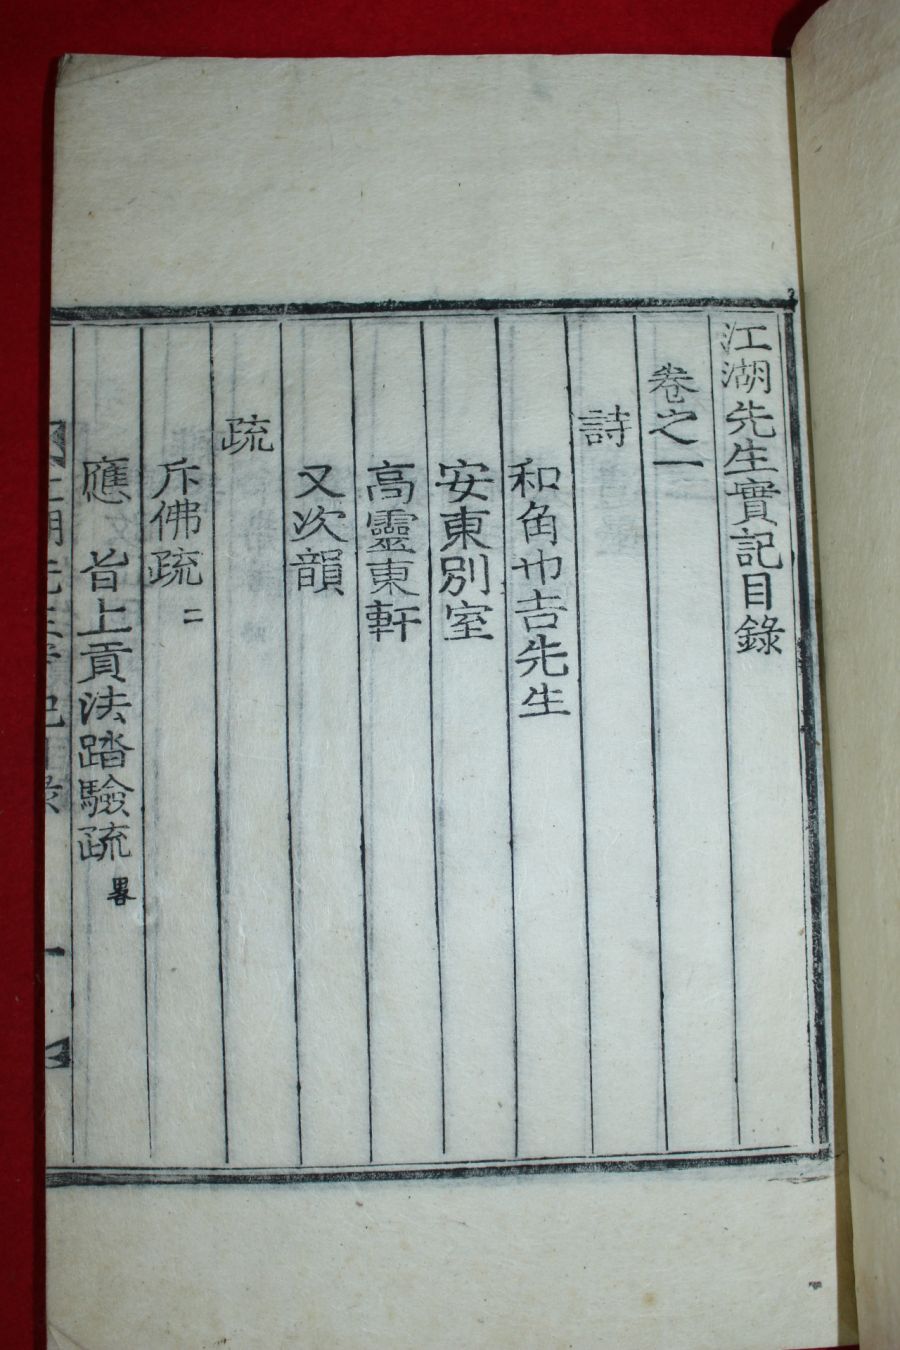 江湖先生實記目錄
卷之一
詩
和角也吉先生
安東別室
高靈東軒
又次韻
疏
斥佛疏 二
應 旨上貢法踏驗疏 畧
一